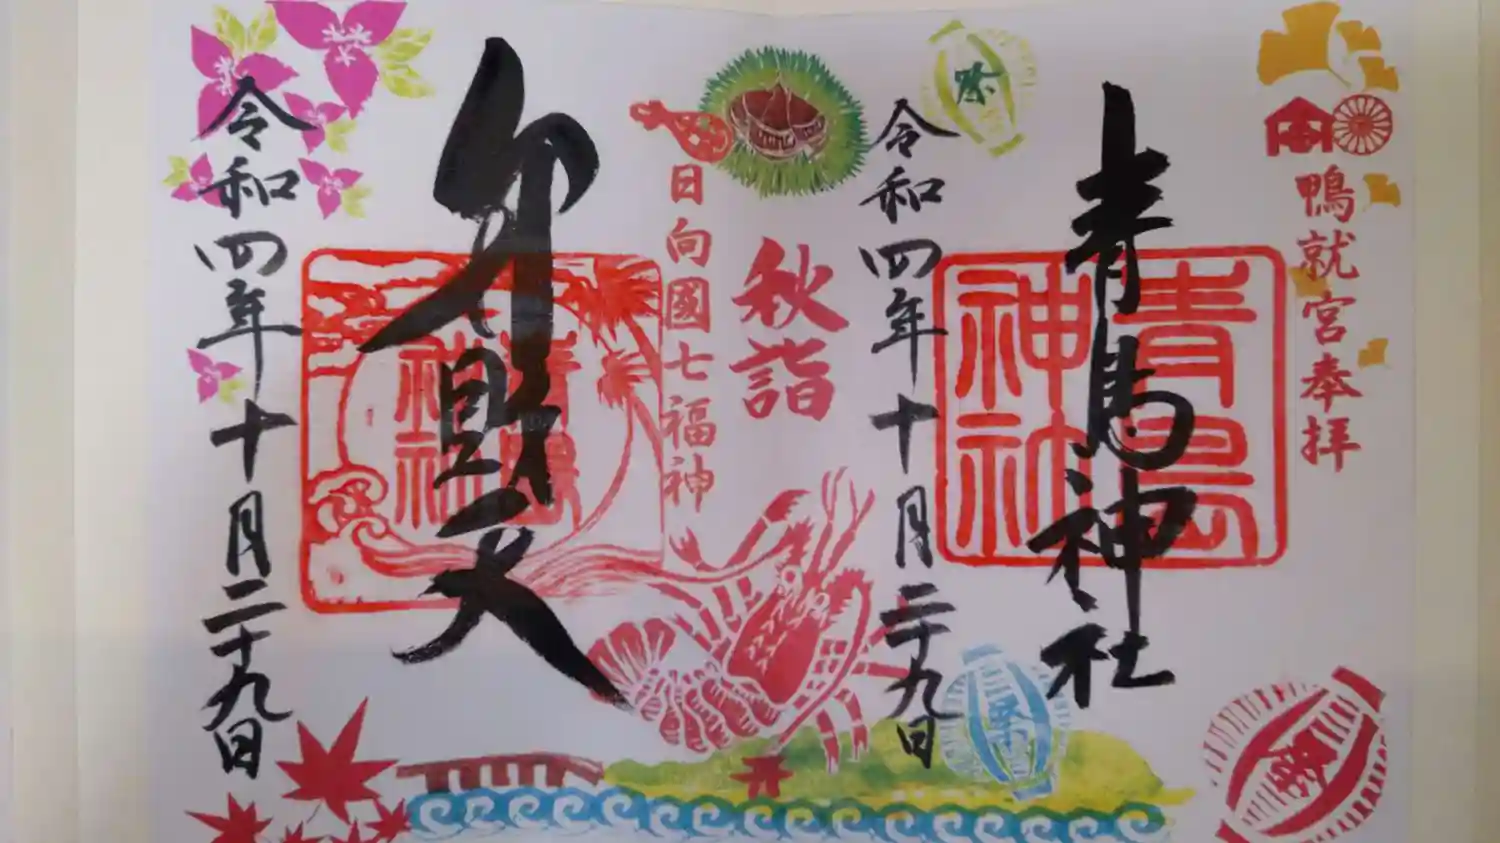 鴨就宮奉拝
青島神社
青島神社
令和四年十月二十九日
祭
秋詣
日向國七福神
弁財天
青島神社
令和四年十月二十九日
祭